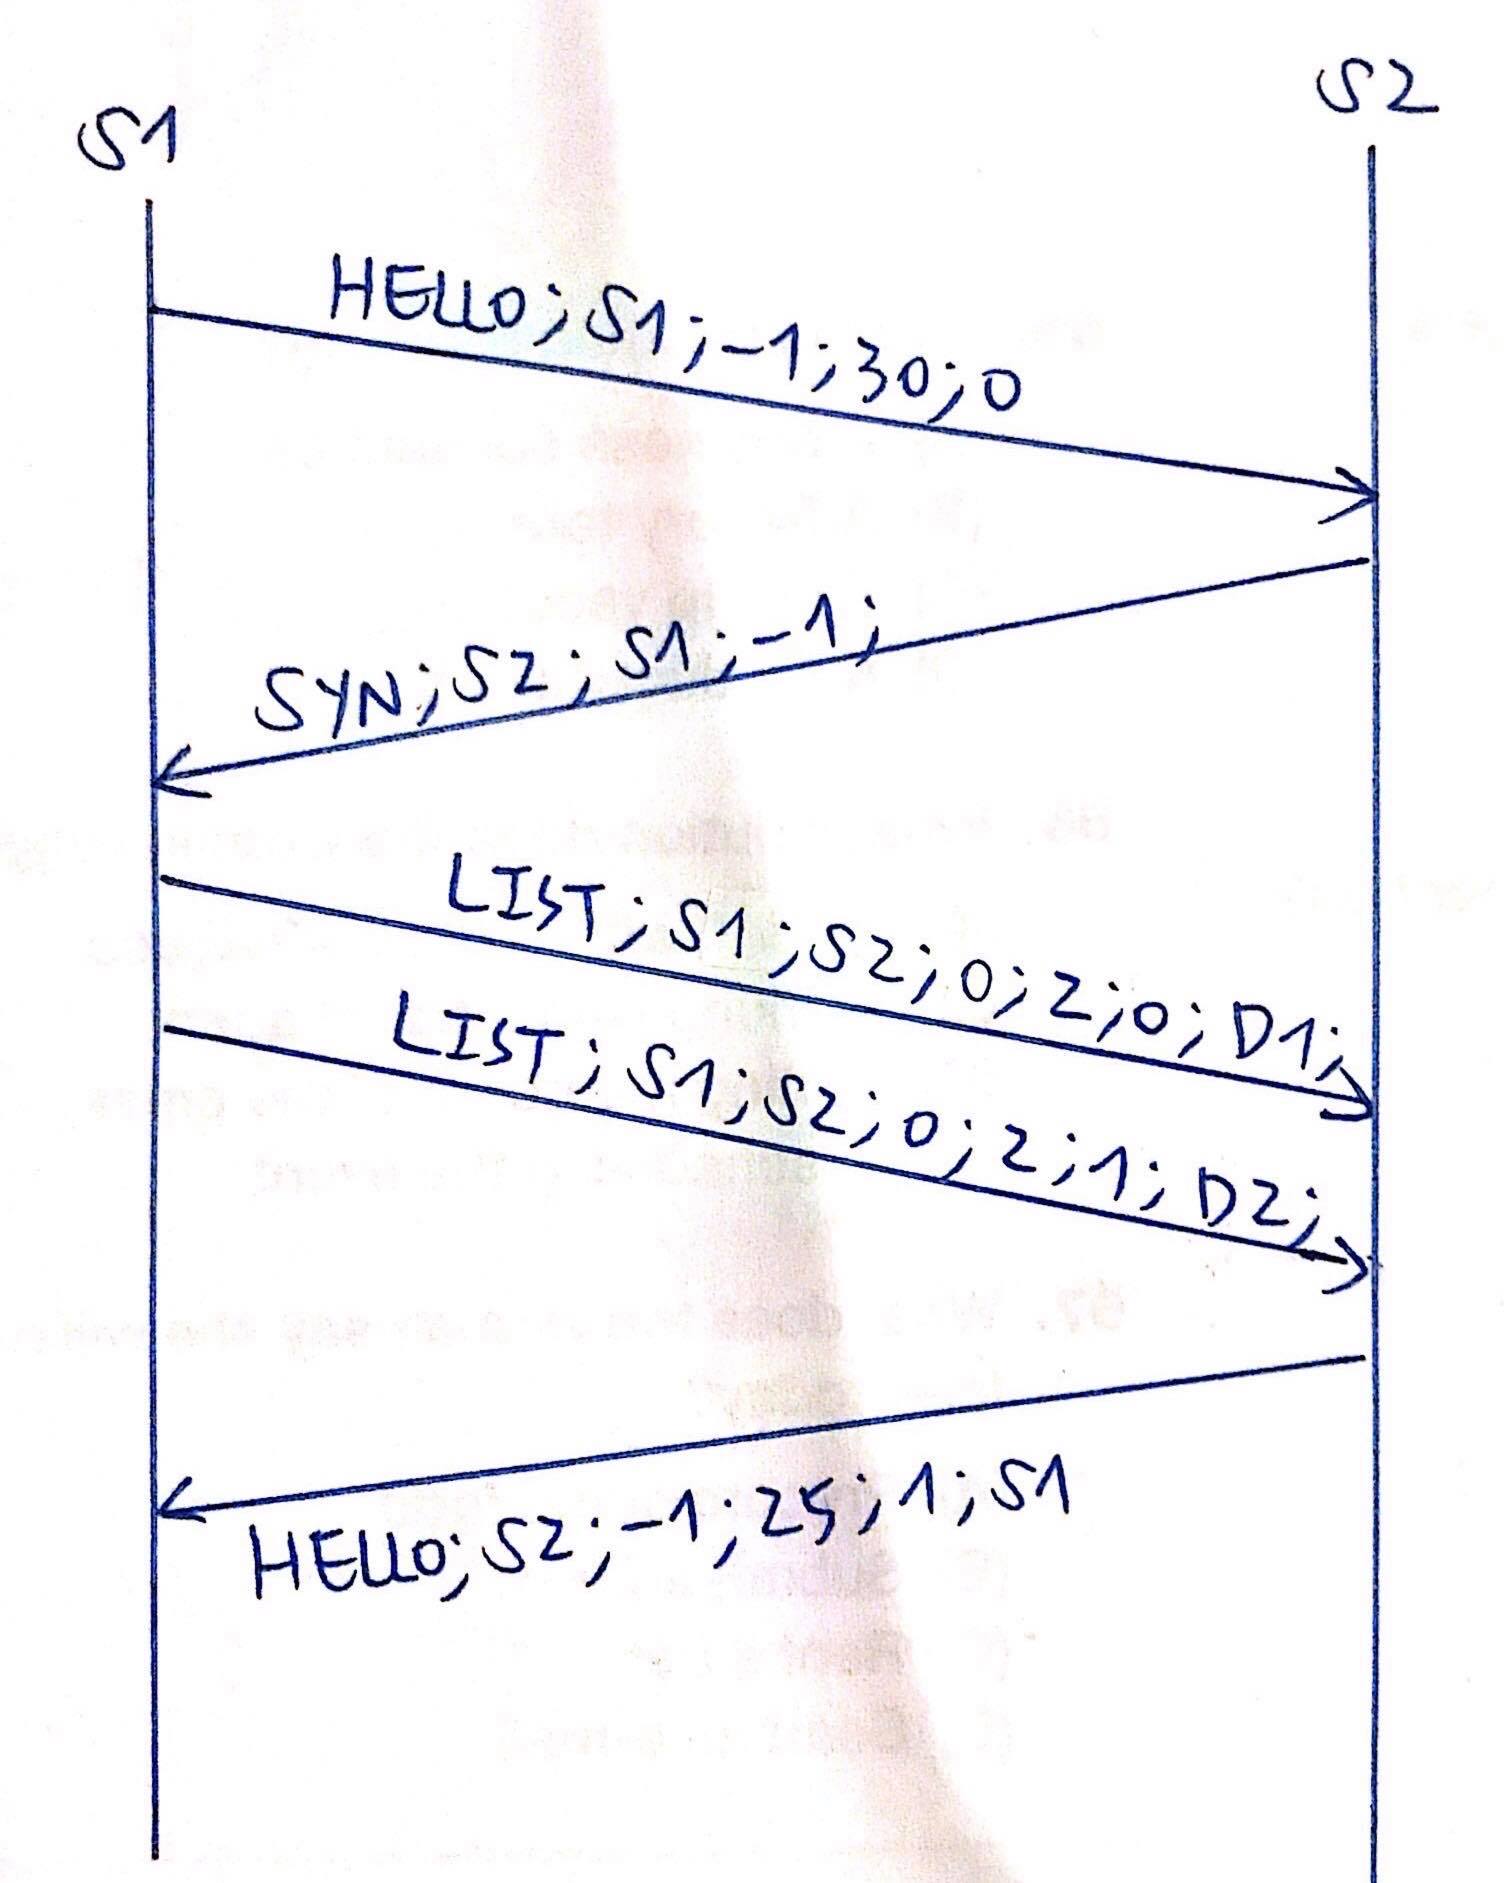 S1
S2
HELLO;S1;-1;30;0
SYN;S2;S1;-1;
LIST;S1;S2;0;2;0;D1;
LIST;S1;S2;0;2;1;D2;
HELLO;S2;-1;25;1;S1